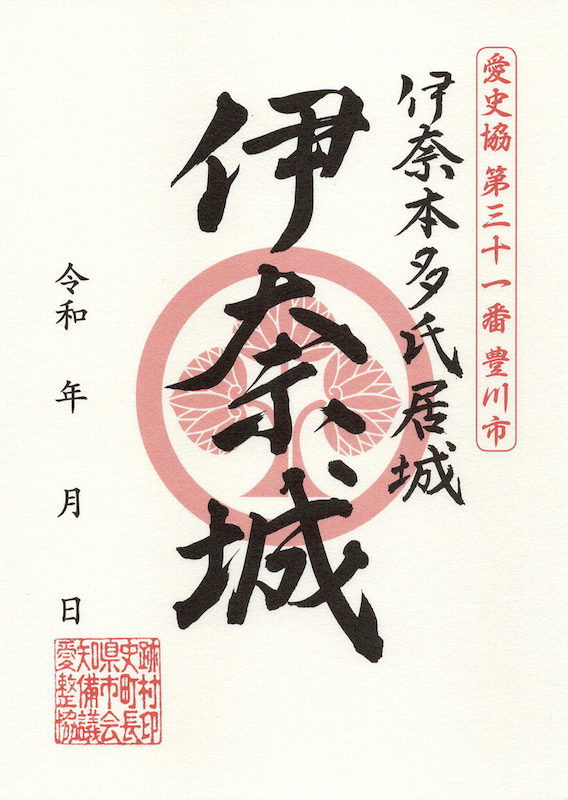 愛史協 第三十一番 豊川市
伊奈本多氏居城
伊奈城
令和 年 月 日
愛知県史跡
整備市町村
協議会長印